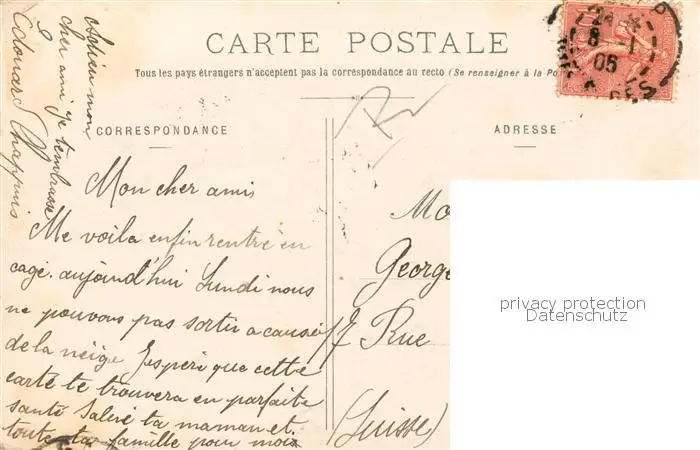 CARTE POSTALE
Tous les pays étrangers n'acceptent pas la correspondance au recto (Se renseigner à la Po
CORRESPONDANCE
ADRESSE
Mon cher ami
Me voila enfin rentré en
cage. aujourd'hui Lundi nous
ne pouvons pas sortir a cause
de la neige J'esperè que cette
carte te trouvera en parfaite
santé Salue ta maman et
toute ta famille pour moi
Adieu mon
cher ami je t'embrasse
Edouard Chappuis
Mo
George
17 Rue
(Suisse)
24
8 - 1
05
privacy protection
Datenschutz